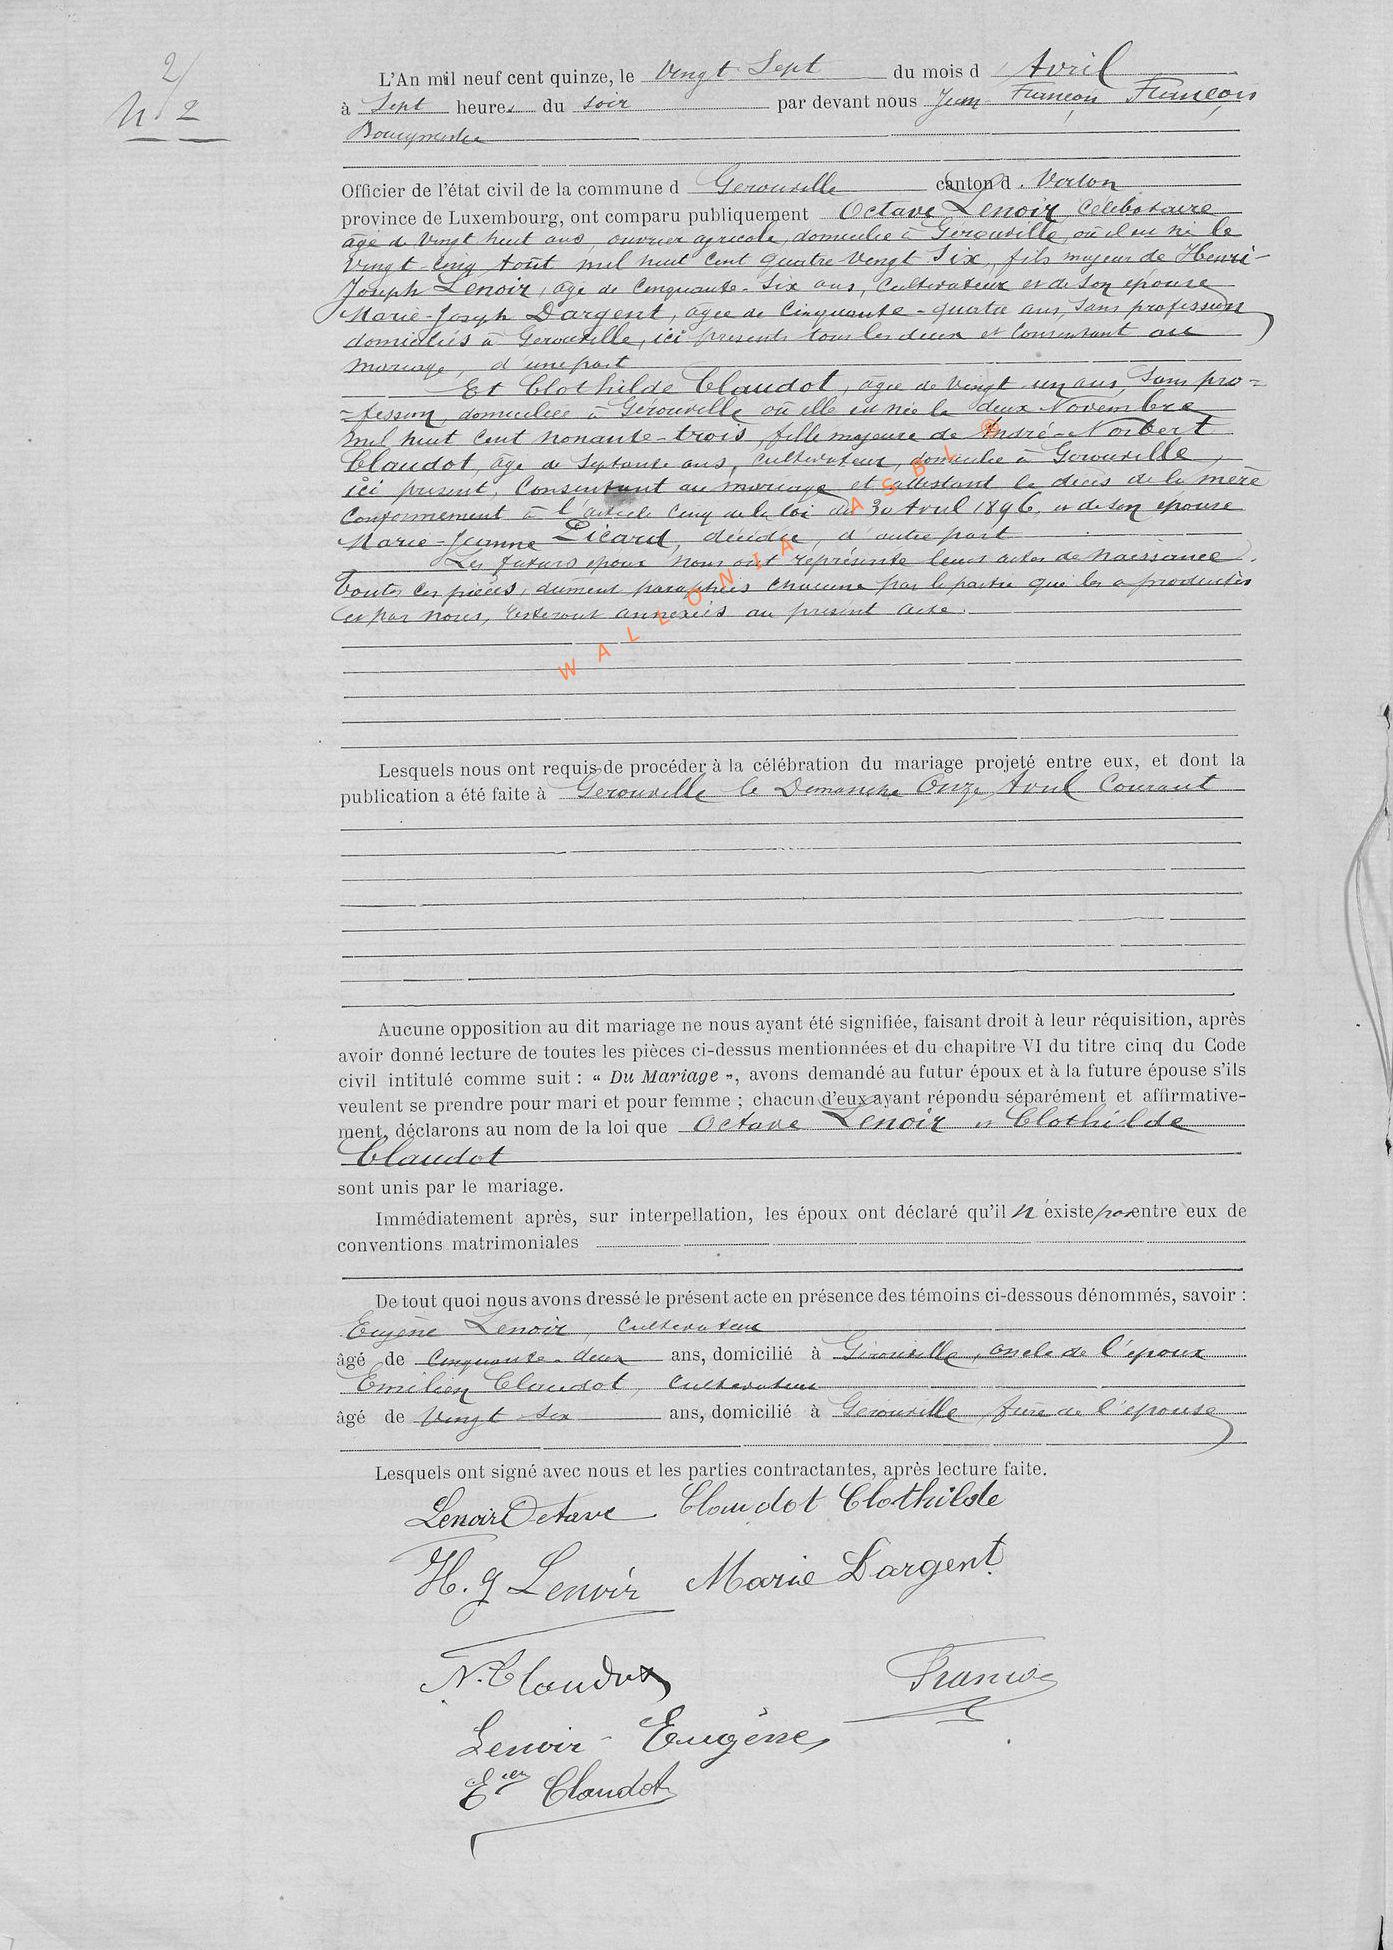 2/
N° 2
L'An mil neuf cent quinze, le Vingt Sept du mois d Avril
à Sept heures du soir par devant nous Jean-François François
Bourgmestre
Officier de l'état civil de la commune d Gerouville canton d Virton
province de Luxembourg, ont comparu publiquement Octave Lenoir célibataire
âgé d vingt huit ans, ouvrier agricole, domicilié à Gerouville, où il est né le
vingt-cinq Août mil huit cent quatre vingt six, fils majeur de Henri-
Joseph Lenoir, âgé de cinquante-six ans, cultivateur et de son épouse
Marie-Joseph Dargent, âgée de cinquante-quatre ans, sans profession
domiciliés à Gerouville, ici présents tous les deux et consentant au
mariage, d'une part
Et Clothilde Claudot, âgée de vingt-un ans, sans pro=
=fession, domiciliée à Gerouville où elle est née le deux Novembre
mil huit cent nonante-trois, fille majeure de André-Norbert
Claudot, âgé de septante ans, cultivateur, domicilié à Gerouville,
ici présent, consentant au mariage et attestant le décès de la mère
conformément à l'article cinq de la loi du 30 Avril 1896, et de son épouse
Marie-Jeanne Picard, décédée, d'autre part
Les futurs époux nous ont représenté leurs actes de naissance.
Toutes ces pièces, dûment paraphées chacune par la partie que les a produites
et par nous, resteront annexées au présent acte.
WALLONIA ASBL ®
Lesquels nous ont requis de procéder à la célébration du mariage projeté entre eux, et dont la
publication a été faite à Gerouville le Dimanche Onze Avril Courant
Aucune opposition au dit mariage ne nous ayant été signifiée, faisant droit à leur réquisition, après
avoir donné lecture de toutes les pièces ci-dessus mentionnées et du chapitre VI du titre cinq du Code
civil intitulé comme suit : « Du Mariage », avons demandé au futur époux et à la future épouse s'ils
veulent se prendre pour mari et pour femme ; chacun d'eux ayant répondu séparément et affirmative-
ment, déclarons au nom de la loi que Octave Lenoir et Clothilde
Claudot
sont unis par le mariage.
Immédiatement après, sur interpellation, les époux ont déclaré qu'il n'existe pas entre eux de
conventions matrimoniales
De tout quoi nous avons dressé le présent acte en présence des témoins ci-dessous dénommés, savoir :
Eugène Lenoir, cultivateur
âgé de cinquante-deux ans, domicilié à Gerouville, oncle de l'époux
Emilien Claudot, cultivateur
âgé de vingt-six ans, domicilié à Gerouville frère de l'épouse
Lesquels ont signé avec nous et les parties contractantes, après lecture faite.
Lenoir Octave Claudot Clothilde
H. J Lenoir Marie Dargent
N. Claudot François
Lenoir-Eugène
Eien Claudot